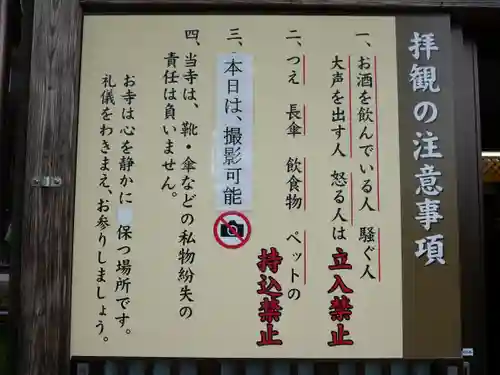 拝観の注意事項
一、お酒を飲んでいる人 騒ぐ人
大声を出す人 怒る人は 立入禁止
二、つえ 長傘 飲食物 ペットの
持込禁止
三、
本日は、撮影可能
四、当寺は、靴・傘などの私物紛失の
責任は負いません。
お寺は心を静かに 保つ場所です。
礼儀をわきまえ、お参りしましょう。